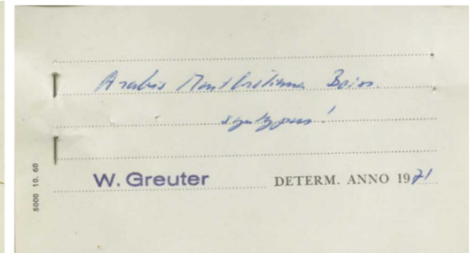 Arabis Montbretiana Boiss.
syntypus!
W. Greuter DETERM. ANNO 1971
5000 10. 60